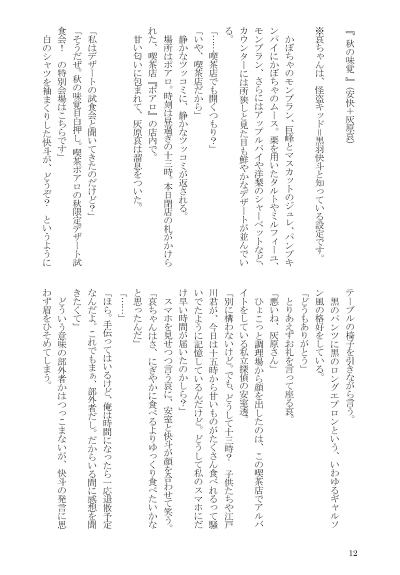 『秋の味覚』（安快＋灰原哀）
※哀ちゃんは、怪盗キッド＝黒羽快斗と知っている設定です。
かぼちゃのモンブラン、巨峰とマスカットのジュレ、パンプキ
ンパイにかぼちゃのムース。栗を用いたタルトやミルフィーユ、
モンブラン、さらにはアップルパイや洋梨のシャーベットなど、
カウンターには所狭しと見た目も鮮やかなデザートが並んでい
る。
「……喫茶店でも開くつもり？」
「いや、喫茶店だから」
静かなツッコミに、静かなツッコミが返される。
場所はポアロ。時刻は昼過ぎの十三時。本日閉店の札がかけら
れた、喫茶店『ポアロ』の店内で。
甘い匂いに包まれて、灰原哀は溜息をついた。
「私はデザートの試食会と聞いてきたのだけど？」
「そうだぜ。秋の味覚目白押し。喫茶ポアロの秋限定デザート試
食会！　の特別会場はこちらです」
白のシャツを袖まくりした快斗が、どうぞ？　というように
テーブルの椅子を引きながら言う。
黒のパンツに黒のロングエプロンという、いわゆるギャルソ
ン風の格好をしている。
「どうもありがとう」
とりあえずお礼を言って座る哀。
「悪いね、灰原さん」
ひょこっと調理場から顔を出したのは、この喫茶店でアルバ
イトをしている私立探偵の安室透。
「別に構わないけど。でも、どうして十三時？　子供たちや江戸
川君が、今日は十五時から甘いものがたくさん食べれるって騒
いでたように記憶しているんだけど。どうして私のスマホにだ
け早い時間が届いたのかしら？」
スマホを見せつつ言う哀に、安室と快斗が顔を合わせて笑う。
「哀ちゃんはさ、にぎやかに食べるよりゆっくり食べたいかな
と思ったんだ」
「……」
「ほら、手伝ってはいるけど、俺は時間になったら一応退散予定
なんだよ。これでもまぁ、部外者だし。だからいる間に感想を聞
きたくて」
どういう意味の部外者かはつっこまないが、快斗の発言に思
わず眉をひそめてしまう。
12